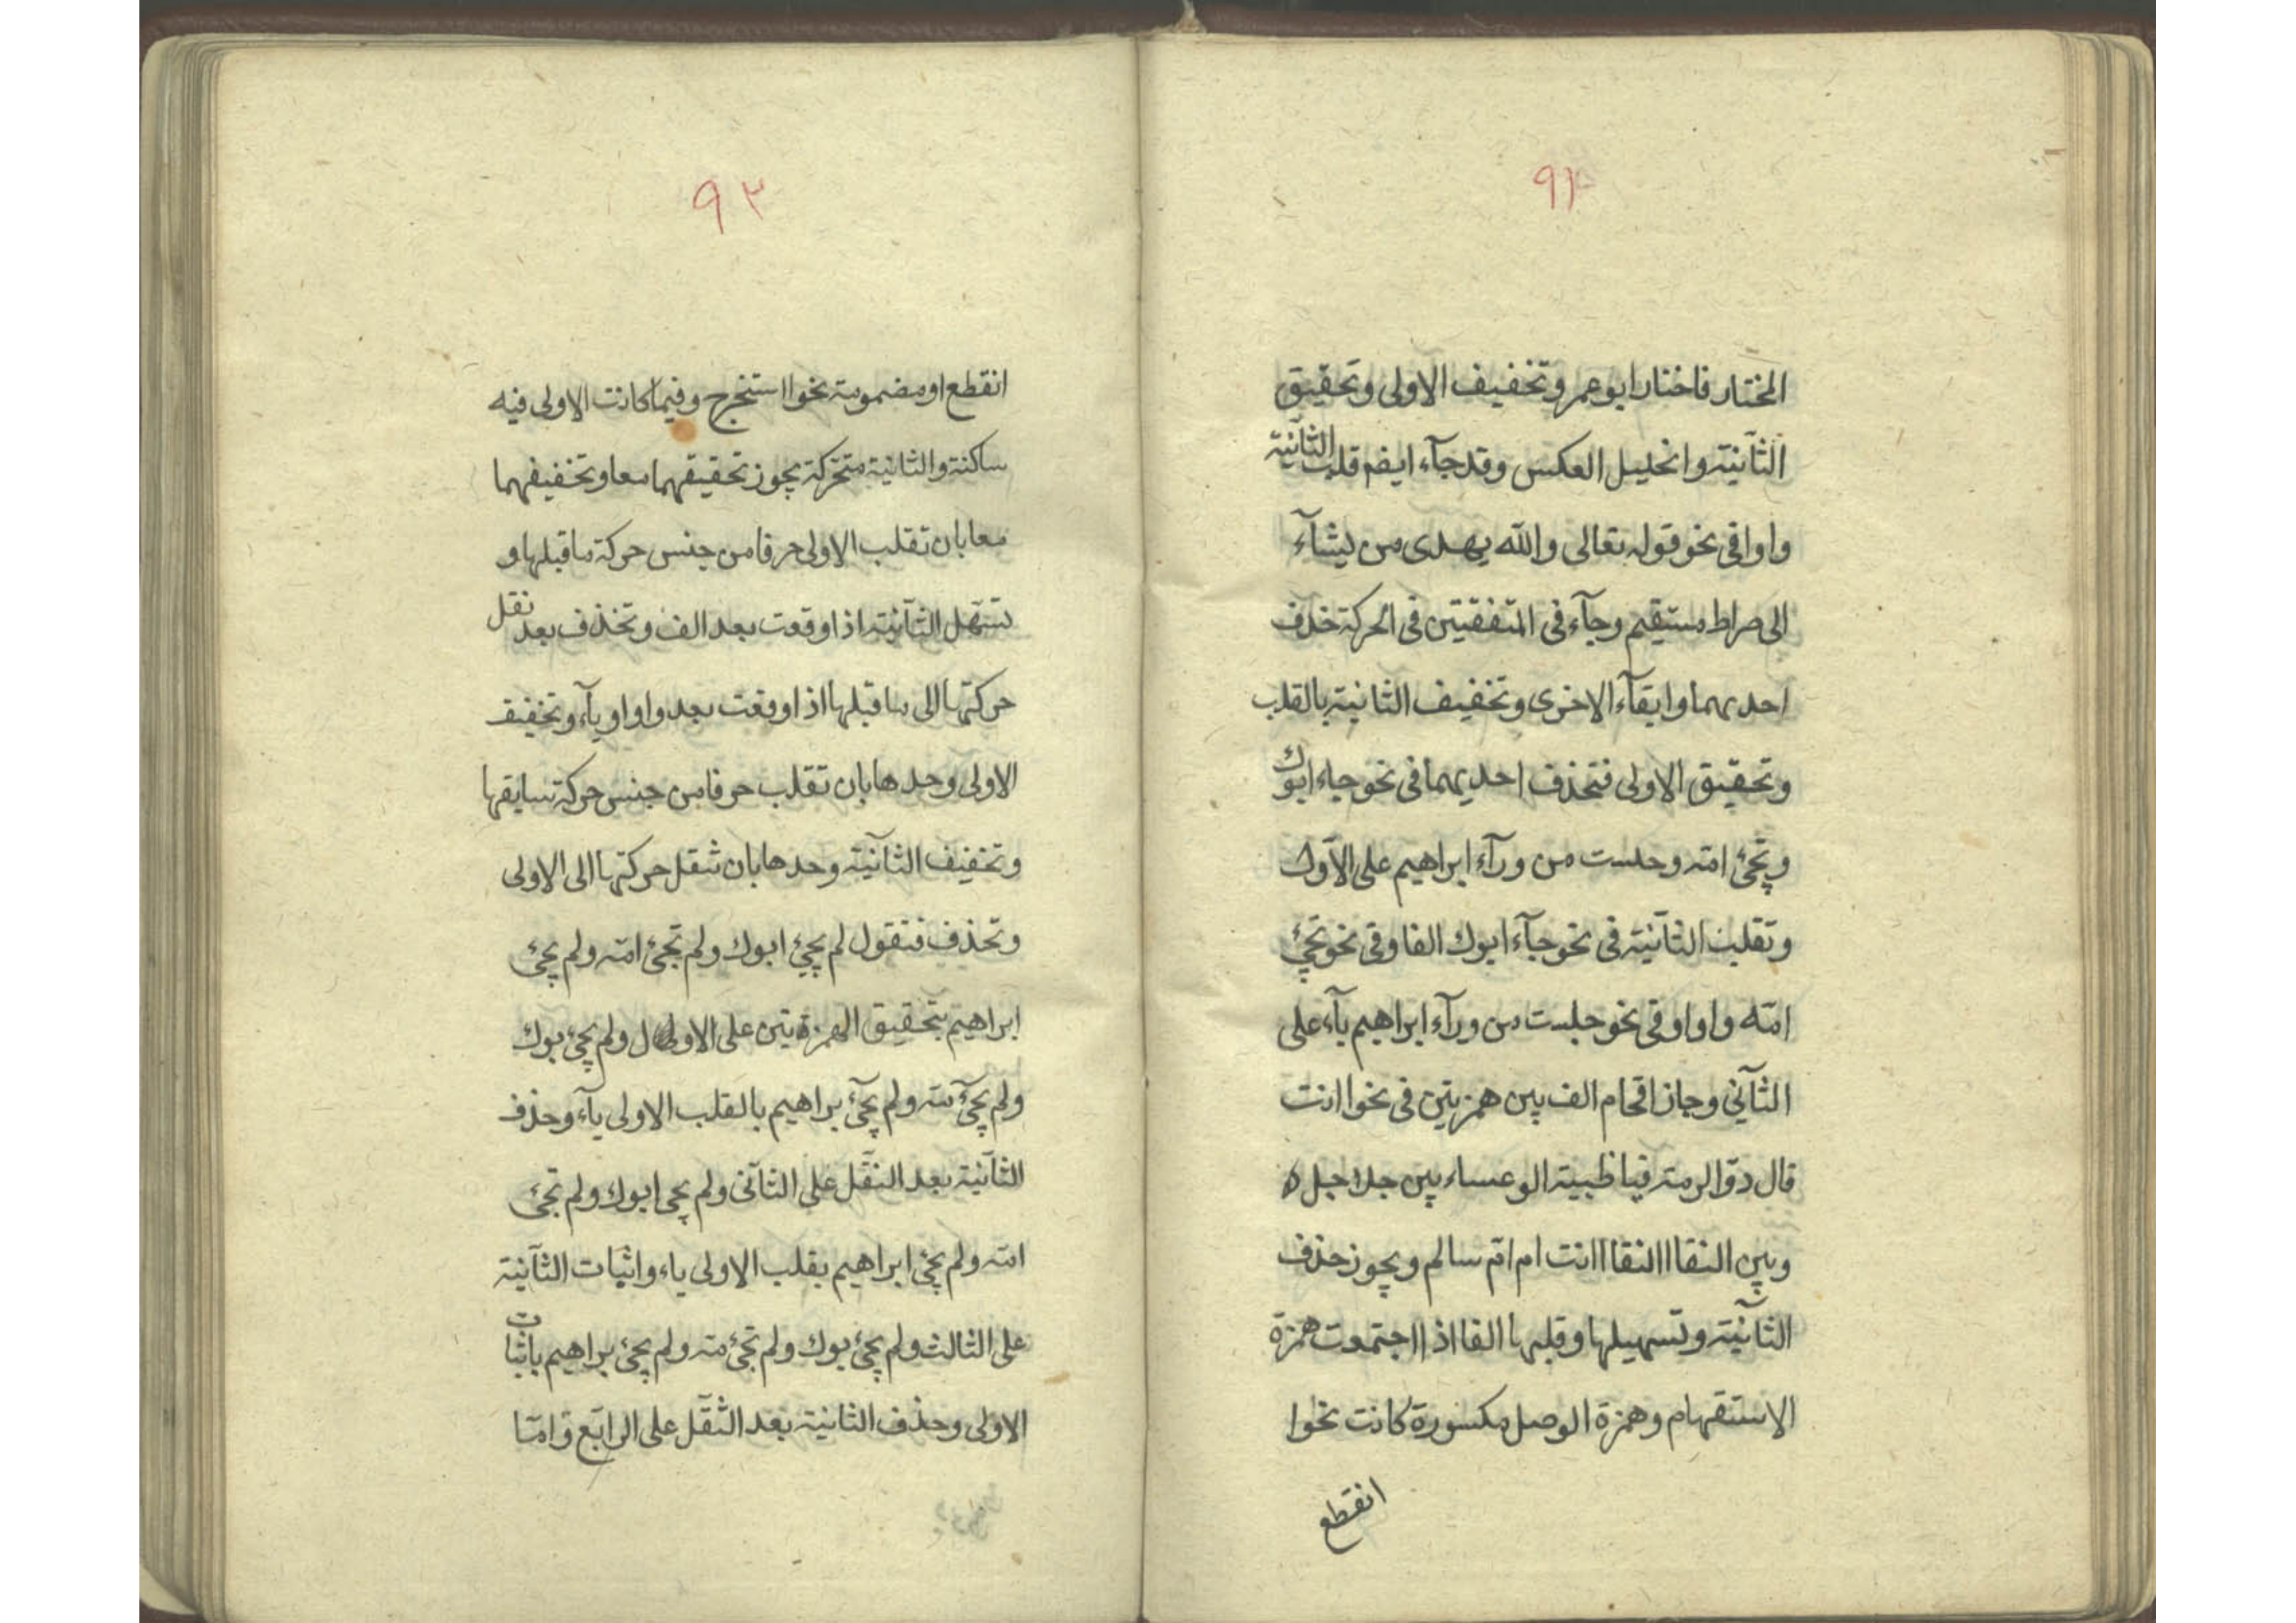 ٩٢
المختار فاختار ابو عمرو تخفيف الاولى وتحقيق
الثآنيته والخليل العكس وقد جآء ايضم قلب الثآنيته
واوا فى نحو قوله تعالى والله يهدى من يشآء
الى صراط مستقيم وجآء فى المتفقتين فى الحركة حذف
احديهما وابقآء الاخرى وتخفيف الثانيته بالقلب
وتحقيق الاولى فتحذف احديهما فى نحو جاء ابوك
وتجئ امته وجلست من ورآء ابراهيم على الآول
وتقلب الثآنيته فى نحو جآء ابوك الفا وفى نحو تجئ
امته واوا وفى نحو جلست من ورآء ابراهيم يآء على
الثآني وجاز اقحام الف بين همزتين فى نحو اانت
قال ذو الرمته فيا ظبيته الوعساء بين جلا جل ه
وبين النقا االنقا اانت ام امّ سالم ويجوز حذف
الثآنيته وتسهيلها وقلبها الفا اذا اجتمعت همزة
الاستفهام وهمزة الوصل مكسورة كانت نحو ا
انقطع
٩٣
انقطع او مضمومته نحو ا استخرج وفيما كانت الاولى فيه
ساكنته والثانيته متحركة يجوز تحقيقهما معا وتخفيفهما
معا بان تقلب الاولى حرفا من جنس حركة ما قبلها و
تسهل الثآنيته اذا وقعت بعد الف وتحذف بعد نقل
حركتها الى ما قبلها اذا وقعت بعد واو او يآء وتخفيف
الاولى وحدها بان تقلب حرفا من جنس حركة سابقها
وتخفيف الثآنيته وحدها بان تنقل حركتها الى الاولى
وتحذف فتقول لم يجئ ابوك ولم تجئ امته ولم يجئ
ابراهيم بتحقيق الهمزتين على الاول ولم يجئ بوك
ولم يجئ مته ولم يجئ براهيم بالقلب الاولى يآء وحذف
الثآنيته بعد النقل على الثآنى ولم يجى ابوك ولم تجئ
امته ولم يجئ ابراهيم بقلب الاولى ياء واثبات الثآنيته
على الثالث ولم يجئ بوك ولم تجئ مته ولم يجئ براهيم باثبات
الاولى وحذف الثانيته بعد النقل على الرابع وامّا